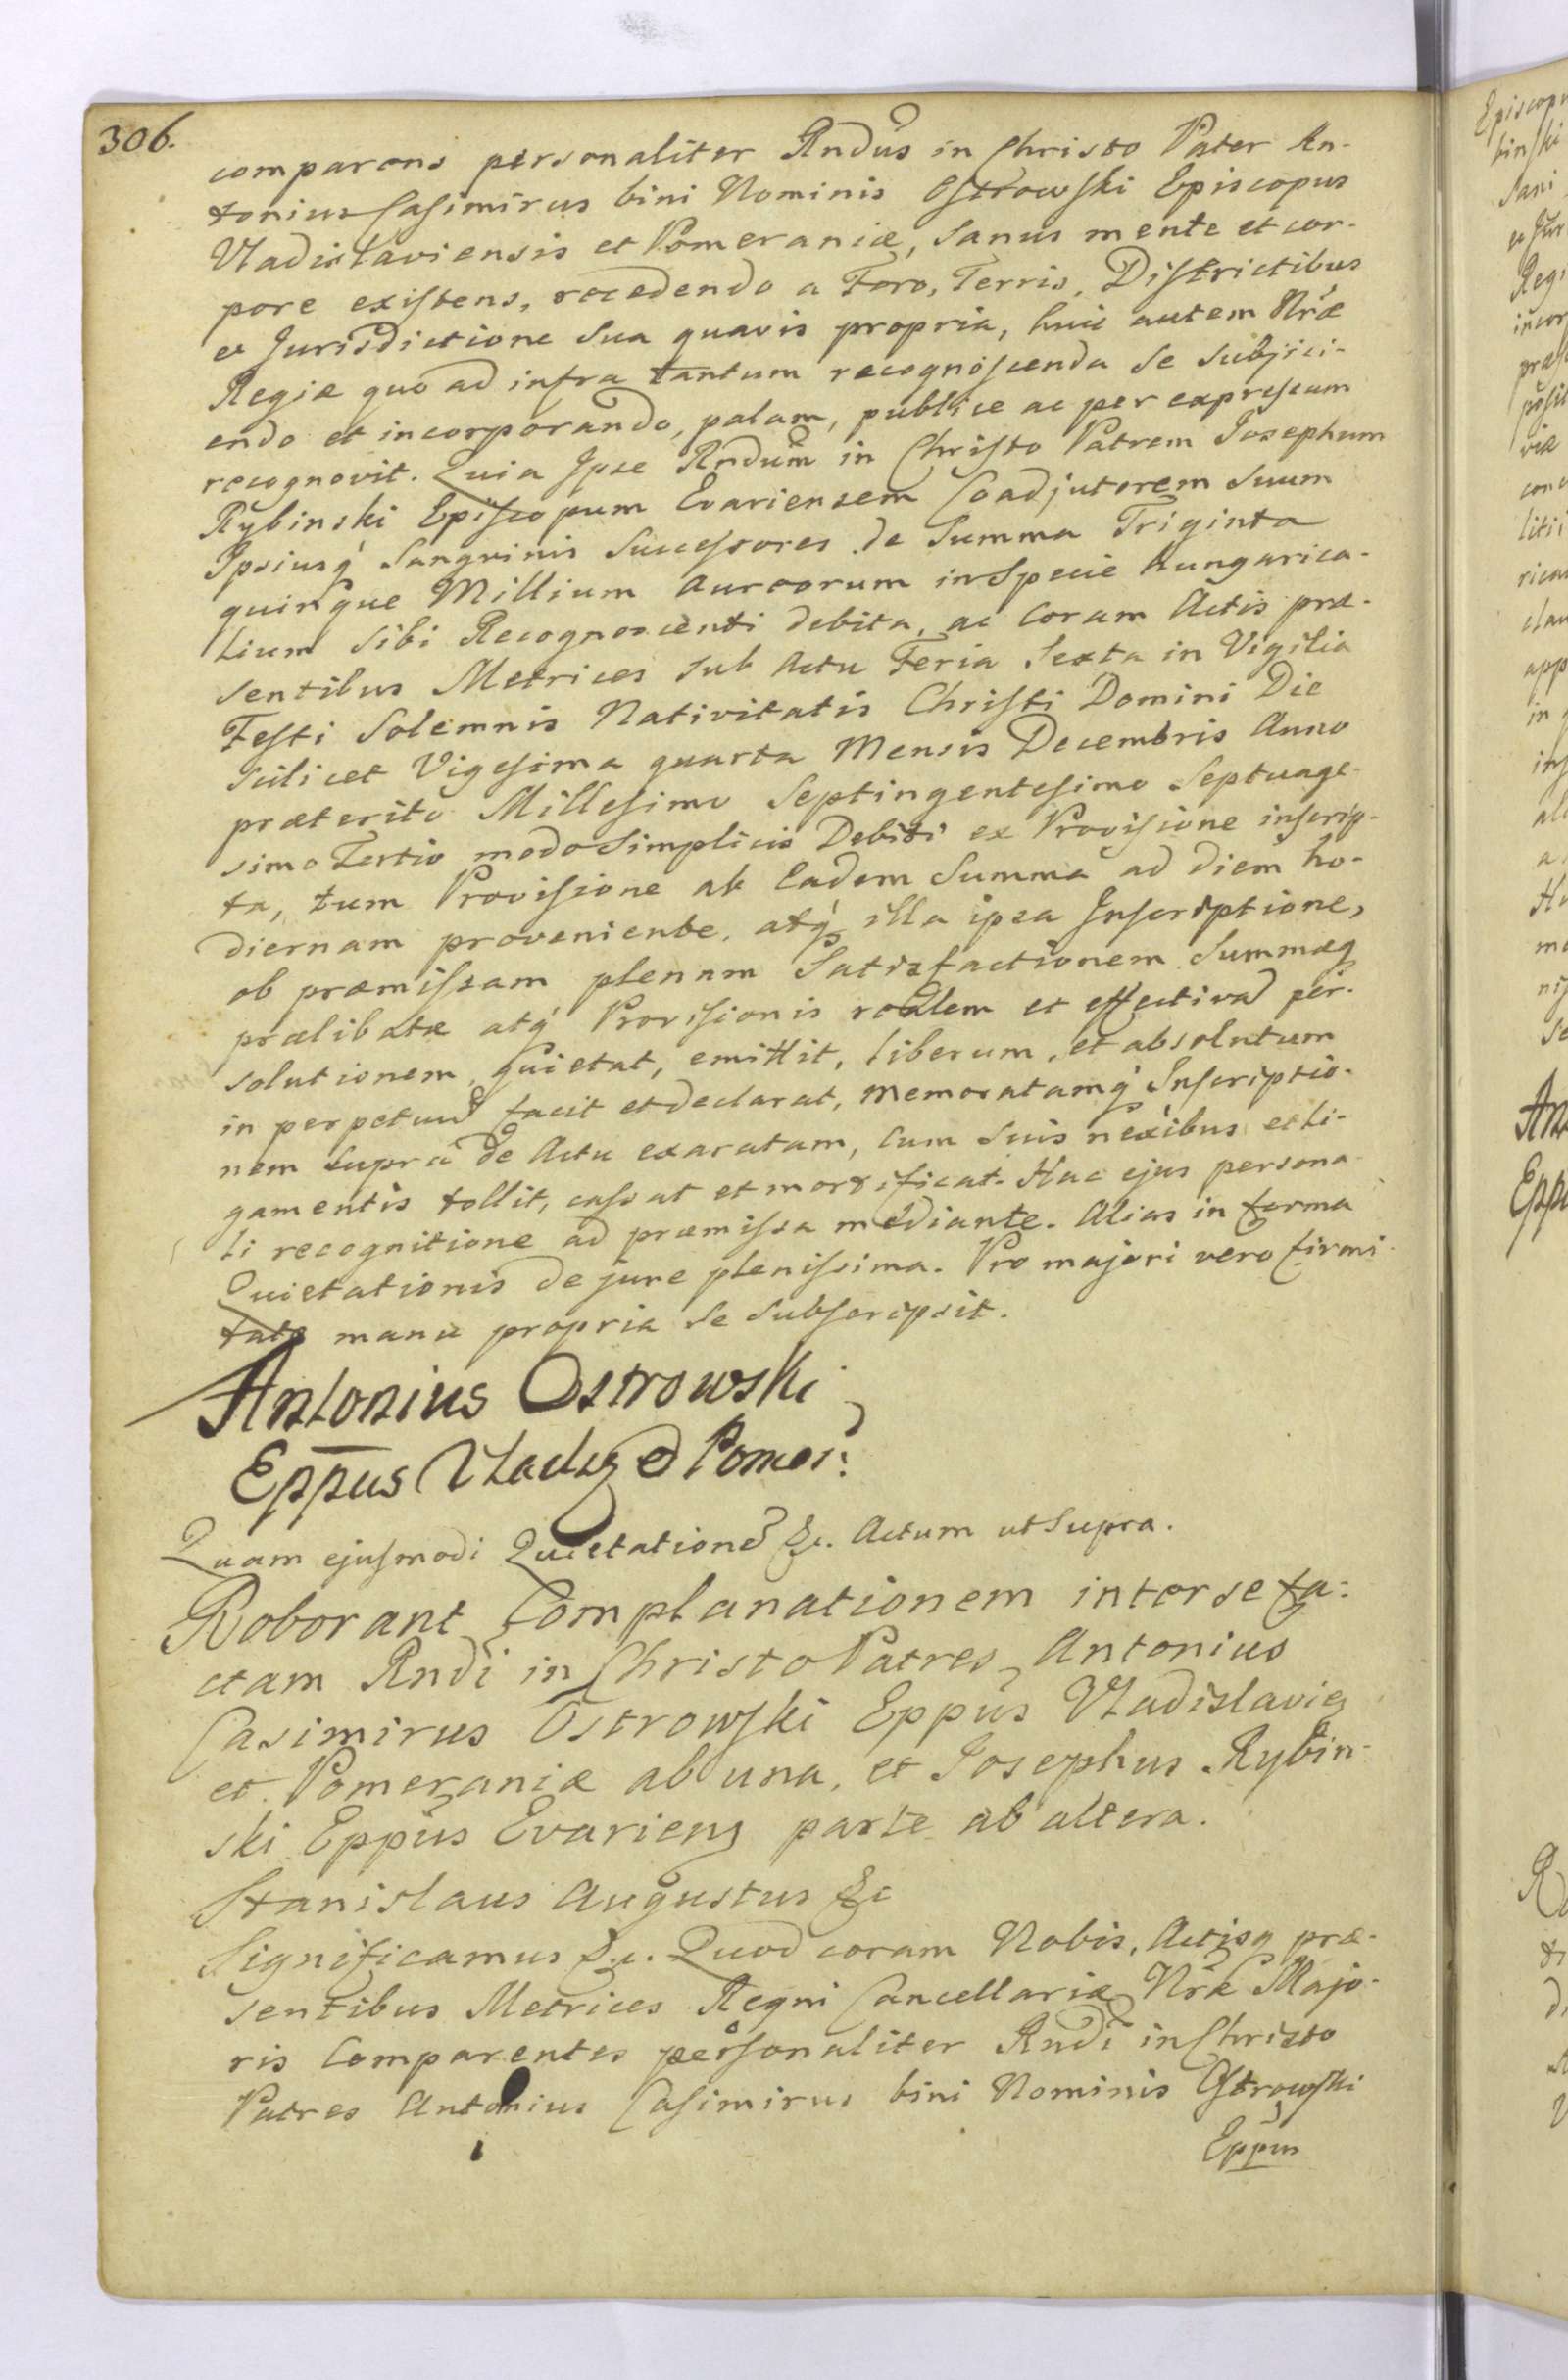 306.
comparens personaliter Rndus in Christo Pater An-
tonius Casimirus bini Nominis Ostrowski Episcopus
Vladislaviensis et Pomeraniæ, Sanus mente et cor-
pore existens, recedendo a Foro, Terris, Districtibus
et Jurisdictione Sua quavis propria, huic autem Nræ
Regiæ quo ad infra tantum recognoscenda Se Subjici-
endo et incorporando, palam, publice ac per expressum
recognovit. Quia Ipse Rndum in Christo Patrem Josephum
Rybinski Episcopum Evariensem Coadjutorem Suum
Ipsiusq Sangvinis Successores de Summa Triginta
quinque Millium Aureorum in Specie Hungarica-
lium Sibi Recognoscenti debita, ac Coram Actis præ-
sentibus Metrices Sub Actu Feria Sexta in Vigilia
Festi Solemnis Nativitatis Christi Domini Die
Scilicet Vigesima quarta Mensis Decembris Anno
præterito Millesimo Septingentesimo Septuage-
simo Tertio modo Simplicis Debiti ex Provisione inscrip-
ta, tum Provisione ab Eadem Summa ad diem ho-
diernam proveniente, atq illa ipsa Inscriptione,
ob præmissam plenam Satisfactionem Summæq
prælibatæ atq Provisionis realem et effectivam per-
solutionem, quietat, emittit, liberum, et absolutum
in perpetuum facit et declarat, memoratamq Inscriptio-
nem Supra de Actu exaratam, Cum Suis nexibus et li-
gamentis tollit, cassat et mortificat. Hac ejus persona-
li recognitione ad præmissa mediante. Alias in forma
Quietationis de jure plenissima. Pro majori vero firmi-
tate manu propria Se Subscripsit.
Antonius Ostrowski
Eppus Vladis et Pomer:
Quam ejusmodi Quietationem &c. Actum ut Supra.
Roborant Complanationem inter se fa-
ctam Rndi in Christo Patres Antonius
Casimirus Ostrowski Eppus Vladislavien
et Pomeraniæ ab una, et Josephus Rybin-
ski Eppus Evariens parte ab altera.
Stanislaus Augustus &c
Significamus &c. Quod coram Nobis, Actisq præ-
sentibus Metrices Regni Cancellariæ Nræ Majo-
ris Comparentes personaliter Rndi in Christo
Patres Antonius Casimirus bini Nominis Ostrowski
Eppus